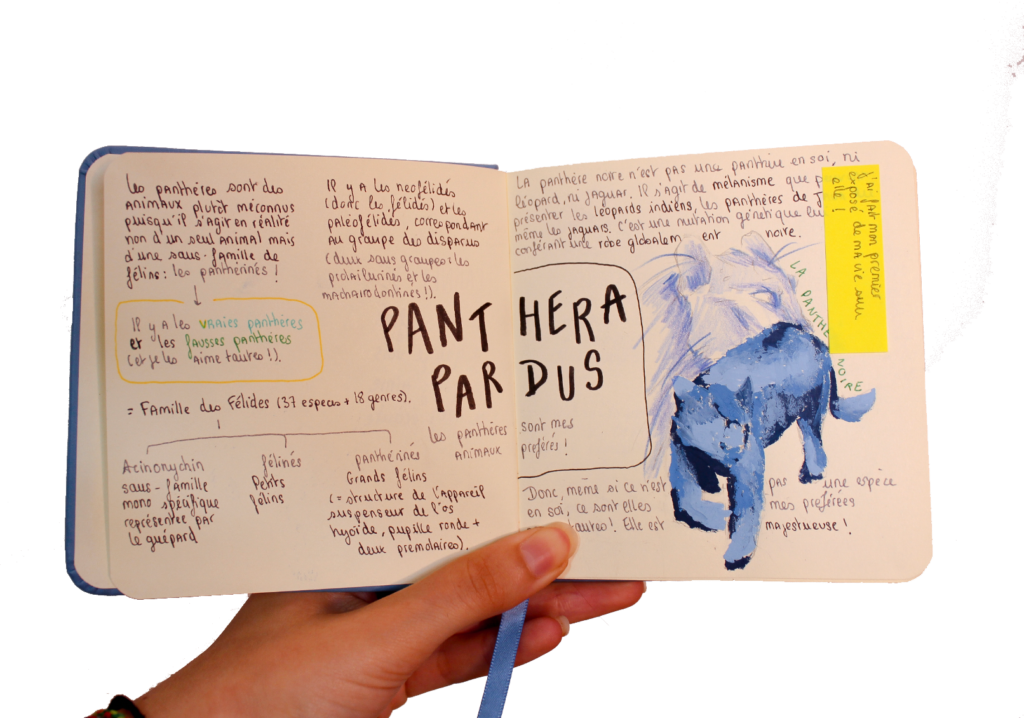 Les panthères sont des
animaux plutôt méconnus
puisqu'il s'agit en réalité
non d'un seul animal mais
d'une sous-famille de
félins : les panthérinés !
Il y a les vraies panthères
et les fausses panthères
(et je les aime toutes !).
= Famille des Félidés (37 espèces + 18 genres).
Acinonychin
sous-famille
mono spécifique
représentée par
le guépard
félinés
Petits
félins
panthérinés
Grands félins
(= structure de l'appareil
suspenseur de l'os
hyoïde, pupille ronde +
deux premolaires).
Il y a les neofélidés
(donc les félidés) et les
paléofélidés, correspondant
au groupe des disparus
(deux sous groupes : les
proailurinés et les
machairodontinés !).
PANTHERA
PARDUS
les panthères sont mes
animaux préférés !
La panthère noire n'est pas une panthère en soi, ni
léopard, ni jaguar. Il s'agit de mélanisme que
présenter les léopards indiens, les panthères de
même les jaguars. C'est une mutation génétique
conférant une robe globalement noire.
J'ai fait mon premier
exposé de ma vie sur
elle !
LA PANTHÈRE NOIRE
Donc, même si ce n'est pas une espèce
en soi, ce sont elles mes préférées
toutes ! Elle est majestueuse !